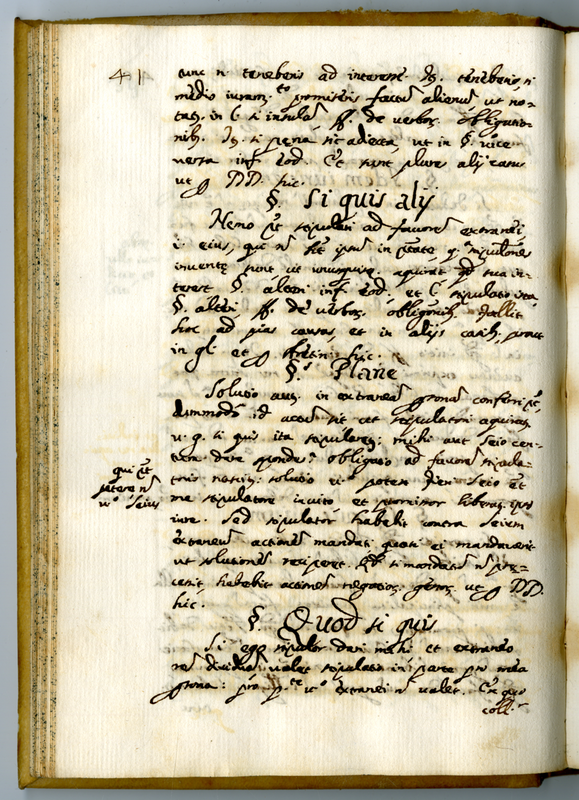 41
tunc n. teneberis ad interesse
medio iuram.to promiseris factum alienum ut no-
in C. si insulam ff. de verbor. obligation
nib. si poena sit adiecta, ut in §. vice
versa inf. eod. Et sunt plures alij casus
ut p DD. hic.
§. Si quis alij
Nemo pt stipulari ad favorem extranei
i. eius, qui n. sit ipsius in ptate q.a stipulationes
inventae sunt ut unusquisq. aquirat qd sua in-
terest §. alteri inf. eod. et C. stipulatio ista
§. alteri ff. de verbor. obligonib. fallit
hoc ad pias causas, et in alijs casib. prout
in gl. et p hic.
§. Plane
Solutio aut. in extraneam psonam conferri pt,
dummodo id actum sit ut stipulatori aquiratur
v. g. si quis ita stipularetur: mihi aut Seio cen-
tum dare spondes? obligatio ad favorem stipula-
toris nascitur: solutio ei potest dari Seio et
qui pt
petere n.
v.o Seius
me stipulatore invito et promissor liberat. ipso
iure. Sed stipulator habebit contra Seium
extraneum actionem mandati quasi ei mandaverit
ut solutionem reciperet. Qd si mandatum n.
cessit, habebit actionem negotior. gestor. ut p DD.
hic.
§. Quod si quis
Si ego stipulor dari mihi et extraneo
rem dividuam valet stipulatio in parte pro mea
psona: pro p.te v.o extranei n. valet. Ex quo
coll.r